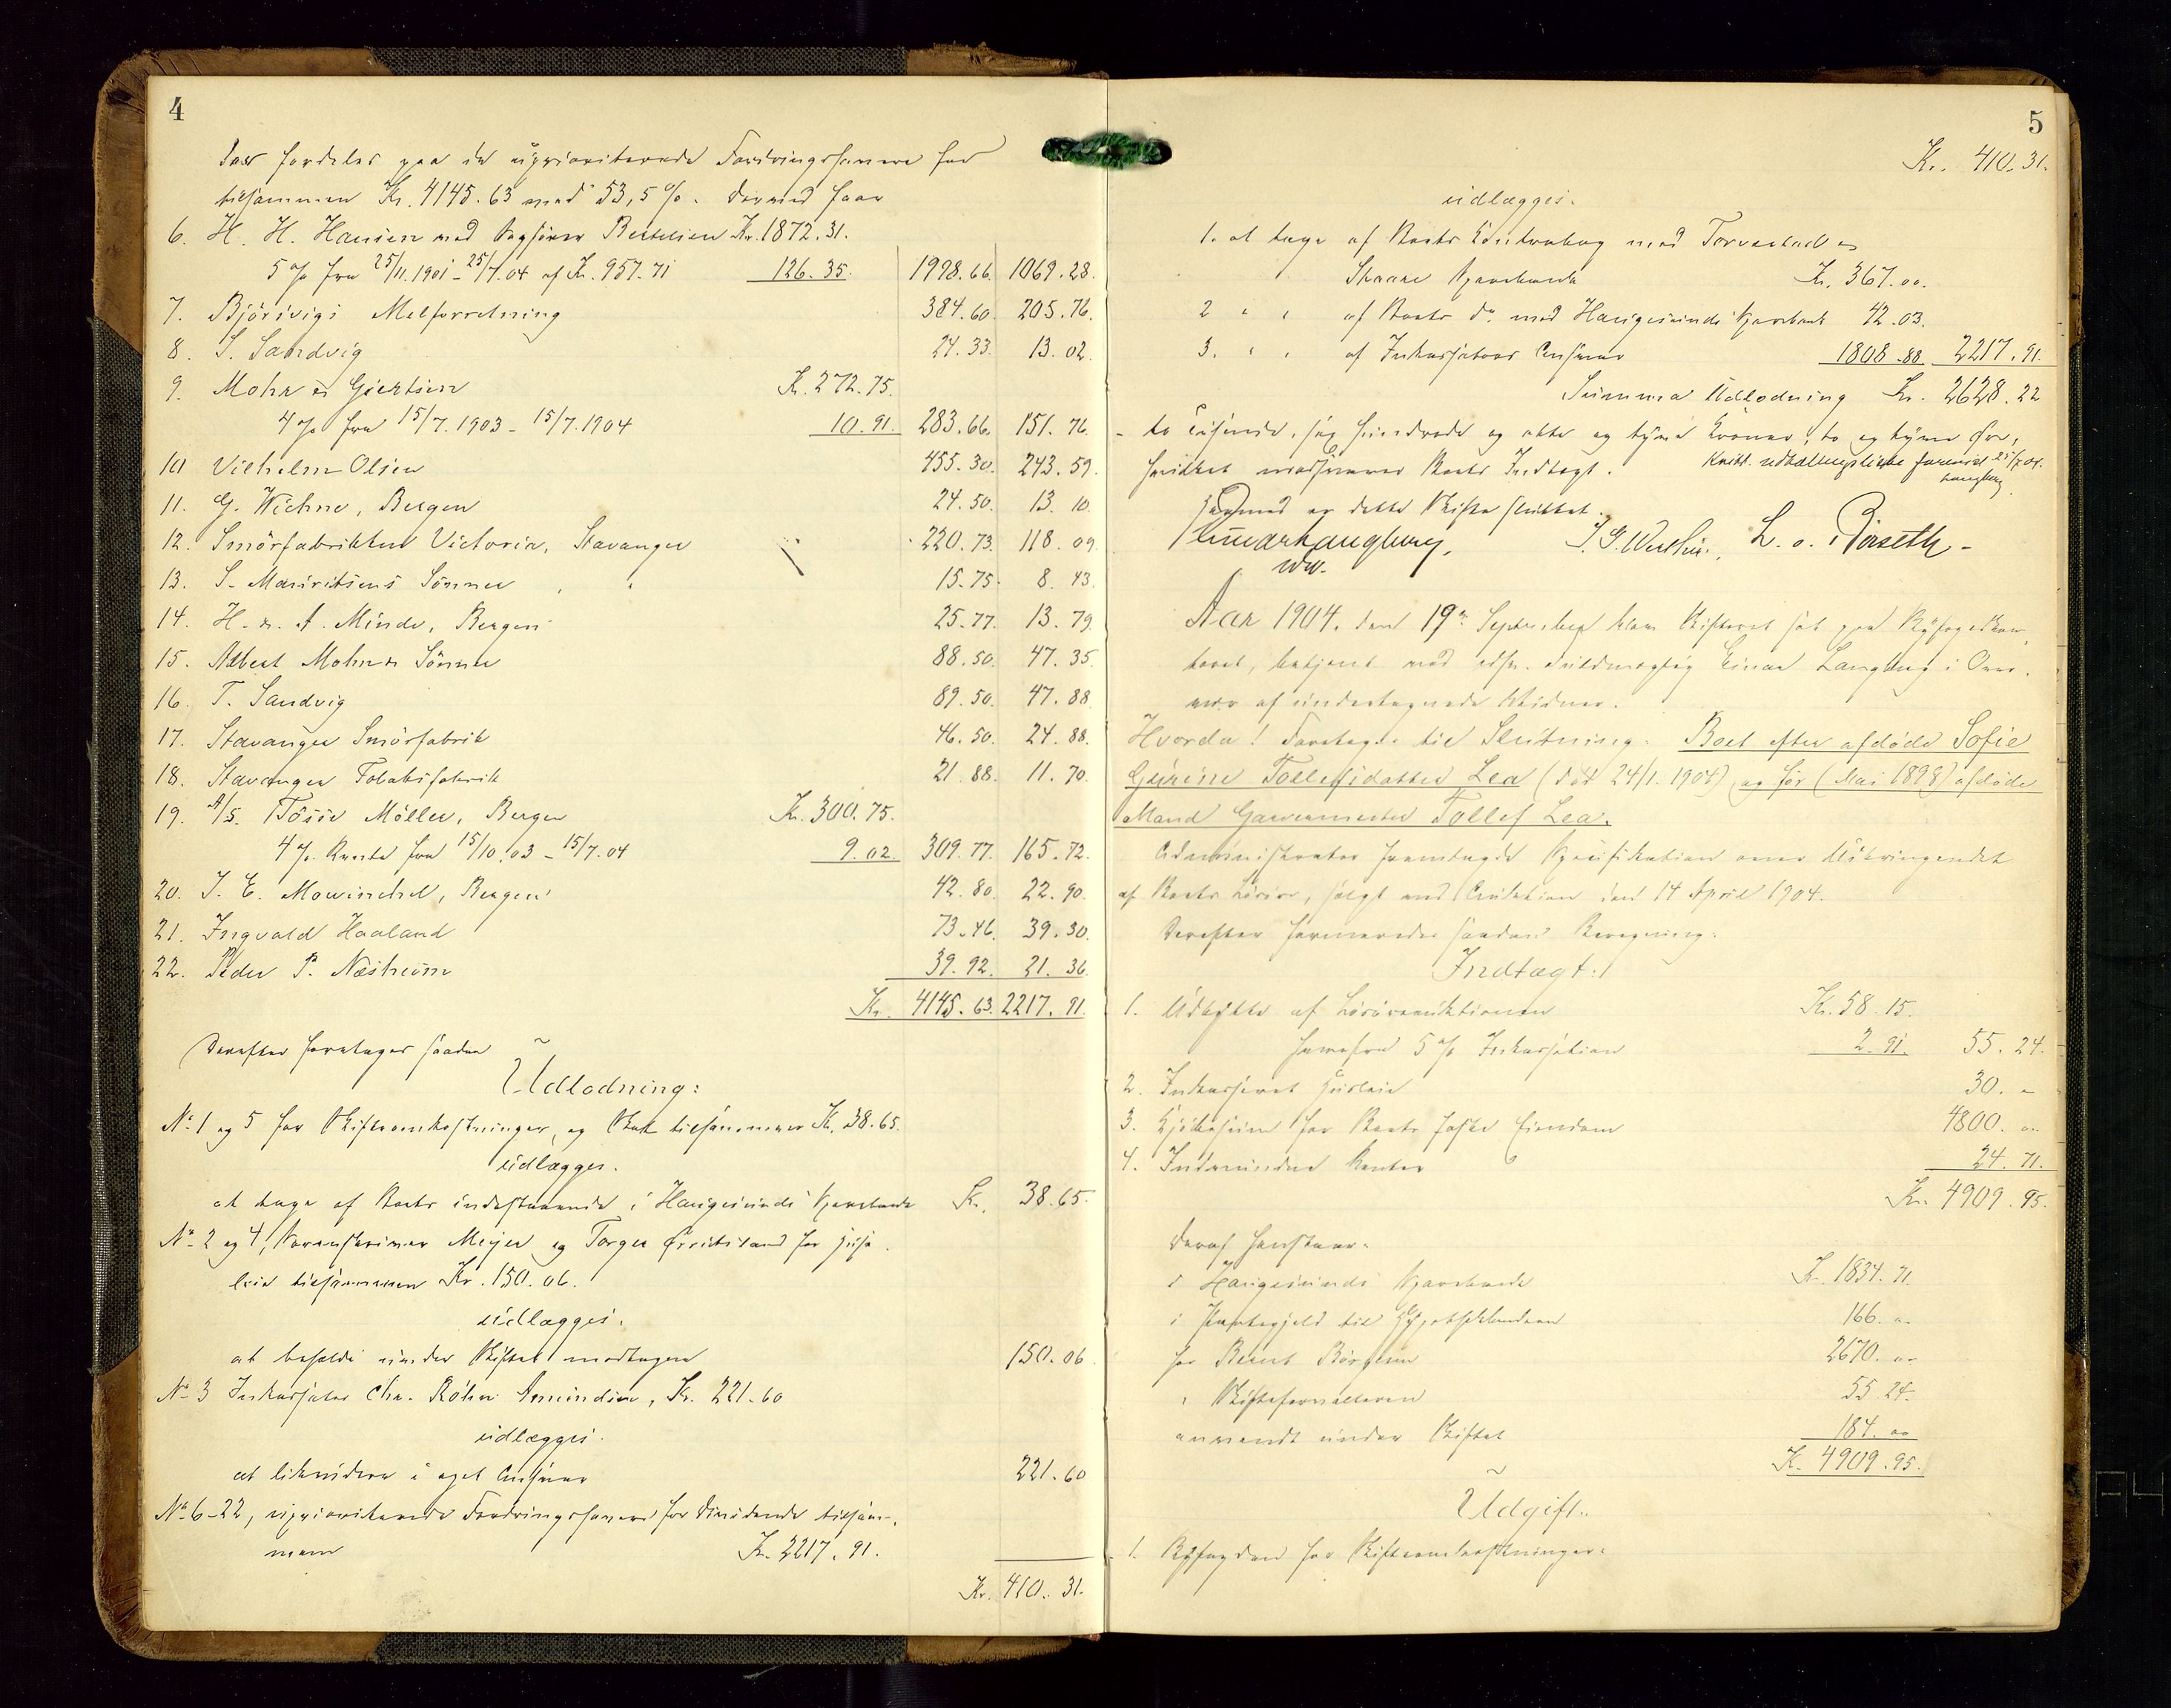 4
der fordeles paa de uprioriterede Fordringshavere for
tilsammen Kr. 4145.63 med 53,5 %. Dermed faar
6. H. H. Hansen med Sagfører Bertelsen Kr. 1872.31.
5 % fra 25/11.1901 - 25/7.04 af Kr. 957.71 126.35. 1998.66. 1069.28.
7. Björsvigs Melforretning 384.60. 205.76.
8. S. Sandvig 24.33. 13.02.
9. Mohr & Giertsen Kr. 272.75.
4 % fra 15/7.1903 - 15/7.1904 10.91. 283.66. 151.76.
10 Vilhelm Olsen 455.30. 243.59.
11. G. Wichne, Bergen 24.50. 13.10.
12. Smörfabrikken Victoria, Stavanger 220.73. 118.09.
13. S. Mauritsens Sönner " " 15.75. 8.43.
14. H. & A. Minde, Bergen 25.77. 13.79.
15. Albert Mohn & Sönner 88.50. 47.35.
16. T. Sandvig 89.50. 47.88
17. Stavanger Smörfabrik 46.50. 24.88.
18. Stavanger Tobaksfabrik 21.88. 11.70.
19. A/S. Tösse Möller, Bergen Kr. 300.75.
4 %. Rente fra 15/10.03 - 15/7.04 9.02. 309.77. 165.72.
20. J. E. Mowinckel, Bergen 42.80. 22.90.
21. Ingvald Haaland 73.46. 39.30.
22. Peder P. Næsheim 39.92. 21.36.
Kr. 4145.63. 2217.91.
Derefter foretages saadan
Udlodning:
No 1 og 5 for Skifteomkostninger, og Skat tilsammen Kr. 38.65.
udlægges.
at tage af Boets indestaaende i Haugesunds Sparebank Kr. 38.65.
No 2 og 4, Meyer og Torger for Husleie
tilsammen Kr. 150.06.
udlægges.
at beholde under Skiftet modtagne 150.06.
No 3 Inkassator Chr. Röhn Amundsen, Kr. 221.60
udlægges.
at likvidere i eget Ansvar 221.60
No 6-22, uprioriterede Fordringshavere for Dividende tilsam-
men Kr. 2217.91.
Kr. 410.31.
5
Kr. 410.31.
udlægges.
1. at tage af Boets Kontrabog med Torvestad &
Skaare Sparebank Kr. 367.00.
2 " " af Boets do med Haugesunds Sparebank 42.03.
3. " " af Inkassators Ansvar 1808.88. 2217.91.
Summa Udlodning Kr. 2628.22
- to tusinde, sex hundrede og otte og tyve Kroner, to og tyve Øre,
hvilket modsvarer Boets Indtægt. Kvitt. udbetalingsliste forevist 25/7 04.
Langberg
Hermed er dette Skifte sluttet.
Einar Langberg,
ww. J. G. Wershu. L. O. Röiseth -
Aar 1904, den 19de September blev Skifteret sat paa Byfogedkon-
toret, betjent ved edsv. Fuldmægtig Einar Langberg i Over-
vær af undertegnede Vidner.
Hvorda! Foretoges til Slutning: Boet efter afdöde Sofie
Gurine Tollefsdatter Lea (död 24/1.1904) og før (Mai 1898) afdöde
Mand Garvermester Tollef Lea.
Administrator fremlagde Specifikation over Udbringendet
af Boets Lösöre, solgt ved Auktion den 14 April 1904.
Derefter formeredes saadan Beregning:
Indtægt:
1. Udbytte af Lösöreauktionen Kr. 58.15.
herefra 5 % Inkassation 2.91. 55.24.
2. Inkasseret Husleie 30. -
3. Kjöbesum for Boets faste Eiendom 4800. oo
4. Indvundne Renter 24.71.
Kr. 4909.95.
Deraf henstaar:
i Haugesunds Sparebank Kr. 1834.71
i Pantegjeld til Hypothekbanken 166. oo
for Bernt Börgesen 2670. oo
" Skifteforvalteren 55.24.
anvendt under Skiftet 184. oo
Kr. 4909.95.
Udgift.
1. Byfogden for Skifteomkostninger: